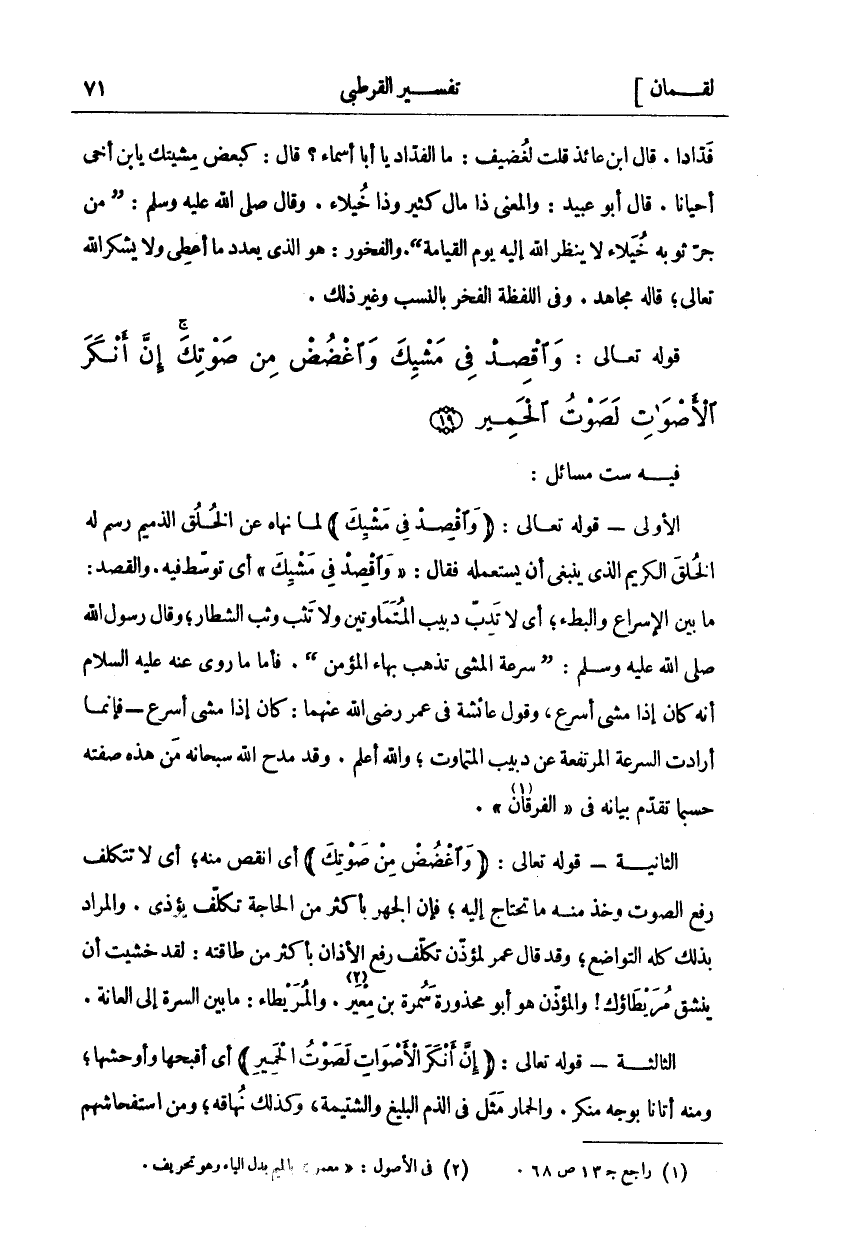 لقمان ] تفسير القرطبى ٧١
فَدّادا . قال ابن عائذ قلت لغُضيف : ما الفدّاد يا أبا أسماء ؟ قال : كبعض مِشيتك يابن أخى
أحيانا . قال أبو عبيد : والمعنى ذا مال كثير وذا خُيلاء . وقال صلى الله عليه وسلم : ” من
جرّ ثوبه خُيَلاء لا ينظر الله إليه يوم القيامة “. والفخور : هو الذى يعدد ما أُعطِى ولا يشكر الله
تعالى؛ قاله مجاهد . وفى اللفظة الفخر بالنسب وغير ذلك .
قوله تعالى : وَٱقْصِدْ فِى مَشْيِكَ وَٱغْضُضْ مِن صَوْتِكَ ۚ إِنَّ أَنْكَرَ
ٱلْأَصْوَٰتِ لَصَوْتُ ٱلْحَمِيرِ ﴿١٩﴾
فيه ست مسائل :
الأولى — قوله تعالى : ﴿ وَٱقْصِدْ فِى مَشْيِكَ ﴾ لما نهاه عن الخُلُق الذميم رسم له
الخُلقَ الكريم الذى ينبغى أن يستعمله فقال : « وَٱقْصِدْ فِى مَشْيِكَ » أى توسّط فيه. والقصد :
ما بين الإسراع والبطء؛ أى لا تَدِبّ دبيب المُتَمَاوتين ولا تَثب وثب الشطار؛ وقال رسول الله
صلى الله عليه وسلم : ” سرعة المشى تذهب بهاء المؤمن “ . فأما ما روى عنه عليه السلام
أنه كان إذا مشى أسرع، وقول عائشة فى عمر رضى الله عنهما : كان إذا مشى أسرع — فإنما
أرادت السرعة المرتفعة عن دبيب المتماوت ؛ والله أعلم . وقد مدح الله سبحانه مَن هذه صفته
حسبما تقدّم بيانه فى « الفرقان(١) » .
الثانية — قوله تعالى : ﴿ وَٱغْضُضْ مِنْ صَوْتِكَ ﴾ أى انقص منه؛ أى لا تتكلف
رفع الصوت وخذ منه ما تحتاج إليه ؛ فإن الجهر بأكثر من الحاجة تكلّف يؤذى . والمراد
بذلك كله التواضع؛ وقد قال عمر لمؤذّن تكلّف رفع الأذان بأكثر من طاقته : لقد خشيت أن
ينشق مُرَيْطَاؤك ! والمؤذّن هو أبو محذورة سَمُرة بن مِعْيَر(٢) . والمُرَيْطاء : مابين السرة إلى العانة .
الثالثة — قوله تعالى : ﴿ إِنَّ أَنْكَرَ الْأَصْوَاتِ لَصَوْتُ الْحَمِيرِ ﴾ أى أقبحها وأوحشها ؛
ومنه أتانا بوجه منكر . والحمار مَثَل فى الذم البليغ والشتيمة، وكذلك نُهاقه؛ ومن استفحاشهم
(١) راجع ج ١٣ ص ٦٨ . (٢) فى الأصول : « معمر » بالميم بدل الياء وهو تحريف .